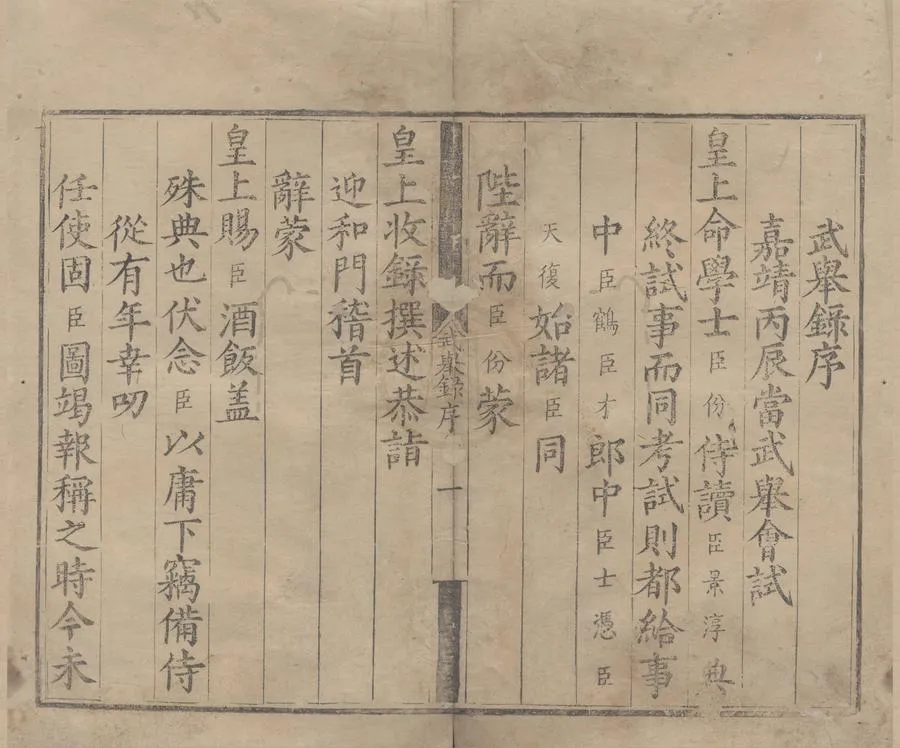 武舉錄序
嘉靖丙辰當武舉會試
皇上命學士臣份侍讀臣景淳典
終試事而同考試則都給事
中臣鶴臣才郎中臣士憑臣
天復始諸臣同
陛辭而臣份蒙
武舉錄序 一
皇上收錄撰述恭詣
迎和門稽首
辭蒙
皇上賜臣酒飯盖
殊典也伏念臣以庸下竊備侍
從有年幸叨
任使固臣圖竭報稱之時今未